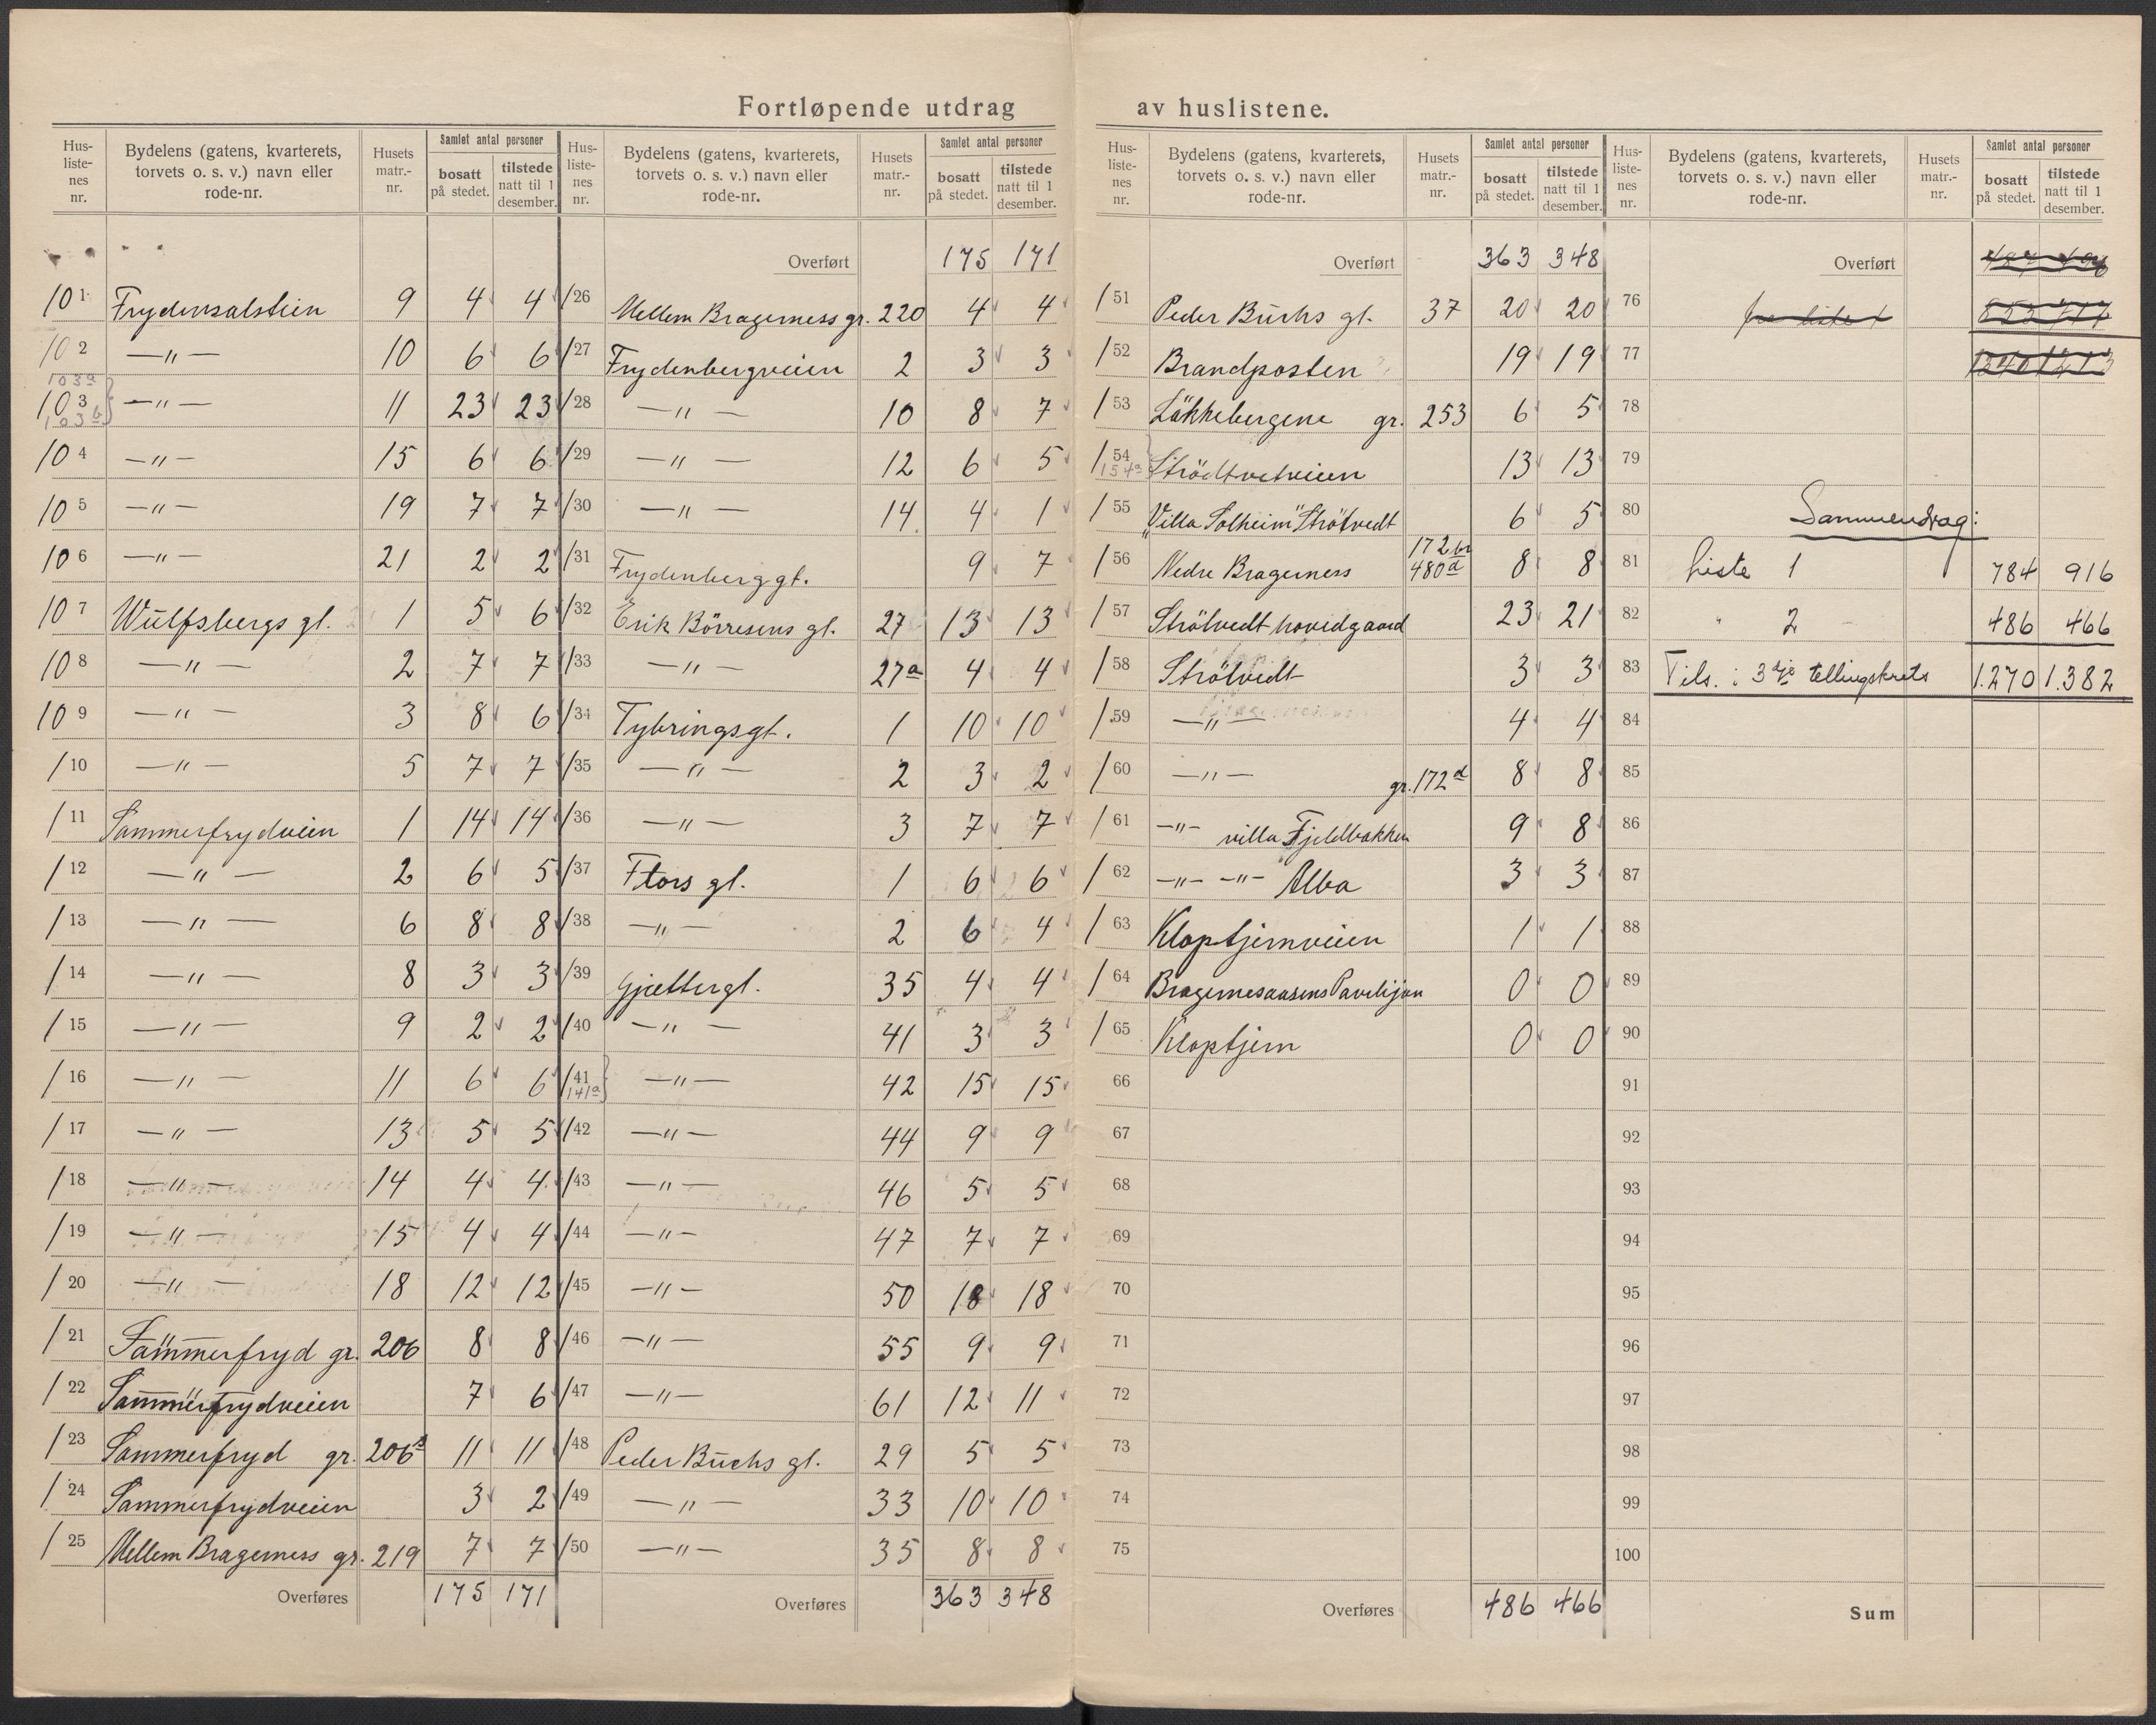 Fortløpende utdrag av huslistene.
Hus-liste-nes nr. | Bydelens (gatens, kvarterets, torvets o. s. v.) navn eller rode-nr. | Husets matr.-nr. | Samlet antal personer: bosatt på stedet. | tilstede natt til 1 desember.
10 1 Frydensalstien 9 4 4
10 2 —"— 10 6 6
103a 10 3 103b —"— 11 23 23
10 4 —"— 15 6 6
10 5 —"— 19 7 7
10 6 —"— 21 2 2
10 7 Wulfsbergs gt. 1 5 6
10 8 —"— 2 7 7
10 9 —"— 3 8 6
/ 10 —"— 5 7 7
/ 11 Sommerfrydveien 1 14 14
/ 12 —"— 2 6 5
/ 13 —"— 6 8 8
/ 14 —"— 8 3 3
/ 15 —"— 9 2 2
/ 16 —"— 11 6 6
/ 17 —"— 13 5 5
/ 18 —"— 14 4 4
/ 19 —"— 15 4 4
/ 20 —"— 18 12 12
/ 21 Sommerfryd gr. 206 8 8
/ 22 Sommerfrydveien 7 6
/ 23 Sommerfryd gr. 206a 11 11
/ 24 Sommerfrydveien 3 2
/ 25 Mellem Bragerness gr. 219 7 7
Overføres 175 171
Hus-liste-nes nr. | Bydelens (gatens, kvarterets, torvets o. s. v.) navn eller rode-nr. | Husets matr.-nr. | Samlet antal personer: bosatt på stedet. | tilstede natt til 1 desember.
Overført 175 171
/26 Mellem Bragerness gr. 220 4 4
/27 Frydenbergveien 2 3 3
/28 —"— 10 8 7
/29 —"— 12 6 5
/30 —"— 14 4 1
/31 Frydenberggt. 9 7
/32 Erik Börresens gt. 27 13 13
/33 —"— 27a 4 4
/34 Tybringsgt. 1 10 10
/35 —"— 2 3 2
/36 —"— 3 7 7
/37 Flors gt. 1 6 6
/38 —"— 2 6 4
/39 Gjettergt. 35 4 4
/40 —"— 41 3 3
/41 141a —"— 42 15 15
/42 —"— 44 9 9
/43 —"— 46 5 5
/44 —"— 47 7 7
/45 —"— 50 18 18
/46 —"— 55 9 9
/47 —"— 61 12 11
/48 Peder Buchs gt. 29 5 5
/49 —"— 33 10 10
/50 —"— 35 8 8
Overføres 363 348
Hus-liste-nes nr. | Bydelens (gatens, kvarterets, torvets o. s. v.) navn eller rode-nr. | Husets matr.-nr. | Samlet antal personer: bosatt på stedet. | tilstede natt til 1 desember.
Overført 363 348
/ 51 Peder Buchs gt. 37 20 20
/ 52 Brandposten 19 19
/ 53 Läkkebergene gr. 253 6 5
/ 54 154a Strödtvetveien 13 13
/ 55 "Villa Solheim" Strötvedt 6 5
/ 56 Nedre Bragerness 172 480d 8 8
/ 57 Strötvedt hovedgaard 23 21
/ 58 Strötvedt 3 3
/ 59 —"— 4 4
/ 60 —"— gr. 172d 8 8
/ 61 —"— villa Fjeldbakken 9 8
/ 62 —"— —"— Alba 3 3
/ 63 Kloptjernveien 1 1
/ 64 Bragernesaasens Paviljon 0 0
/ 65 Kloptjern 0 0
66
67
68
69
70
71
72
73
74
75
Overføres 486 466
Hus-liste-nes nr. | Bydelens (gatens, kvarterets, torvets o. s. v.) navn eller rode-nr. | Husets matr.-nr. | Samlet antal personer: bosatt på stedet. | tilstede natt til 1 desember.
Overført
76
77
78
79
80 Sammendrag:
81 Liste 1 784 916
82 " 2 486 466
83 Tils. i 3dje tellingskrets 1.270 1.382
84
85
86
87
88
89
90
91
92
93
94
95
96
97
98
99
100
Sum